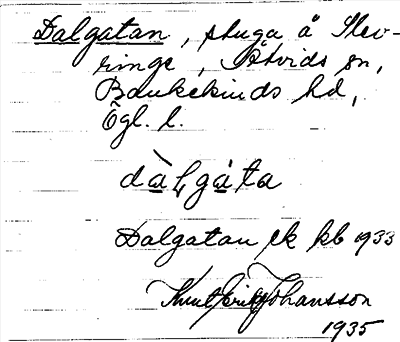 Dalgatan, stuga å Slev-
ringe, Åtvids sn,
Bankekinds hd,
Ögl. l.
dàlgáta
Dalgatan ek kb 1933
Knut Erik Johansson
1935